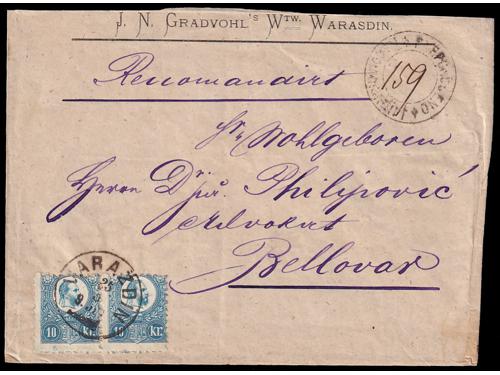 J. N. Gradvohl's Wtw. Warasdin.
Recomandirt
159
Sr. Wohlgeboren
Herrn Dr Philipović
Advokat
Bellovar
VARAŽDIN
25
10 Kr. 10 Kr.